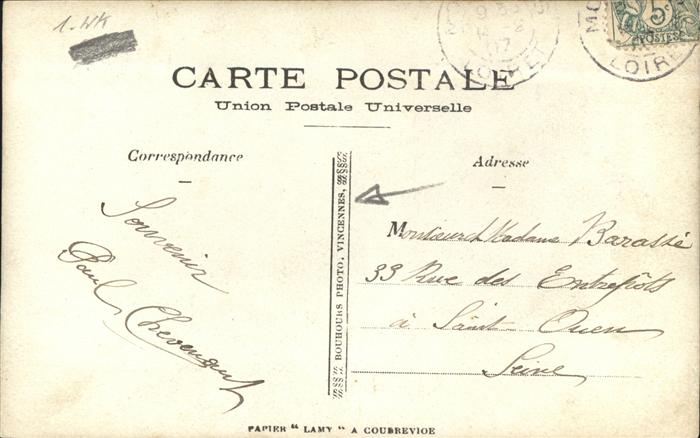 1. WK
5c
POSTES
LOIRET
LOIRE
CARTE POSTALE
Union Postale Universelle
Correspondance
Souvenir
Paul
BOUHOURS PHOTO, VINCENNES,
Adresse
Monsieur et Madame Barassé
33 Rue des Entrepôts
à Saint-Ouen
Seine
PAPIER "LAMY" A COURBEVIOE